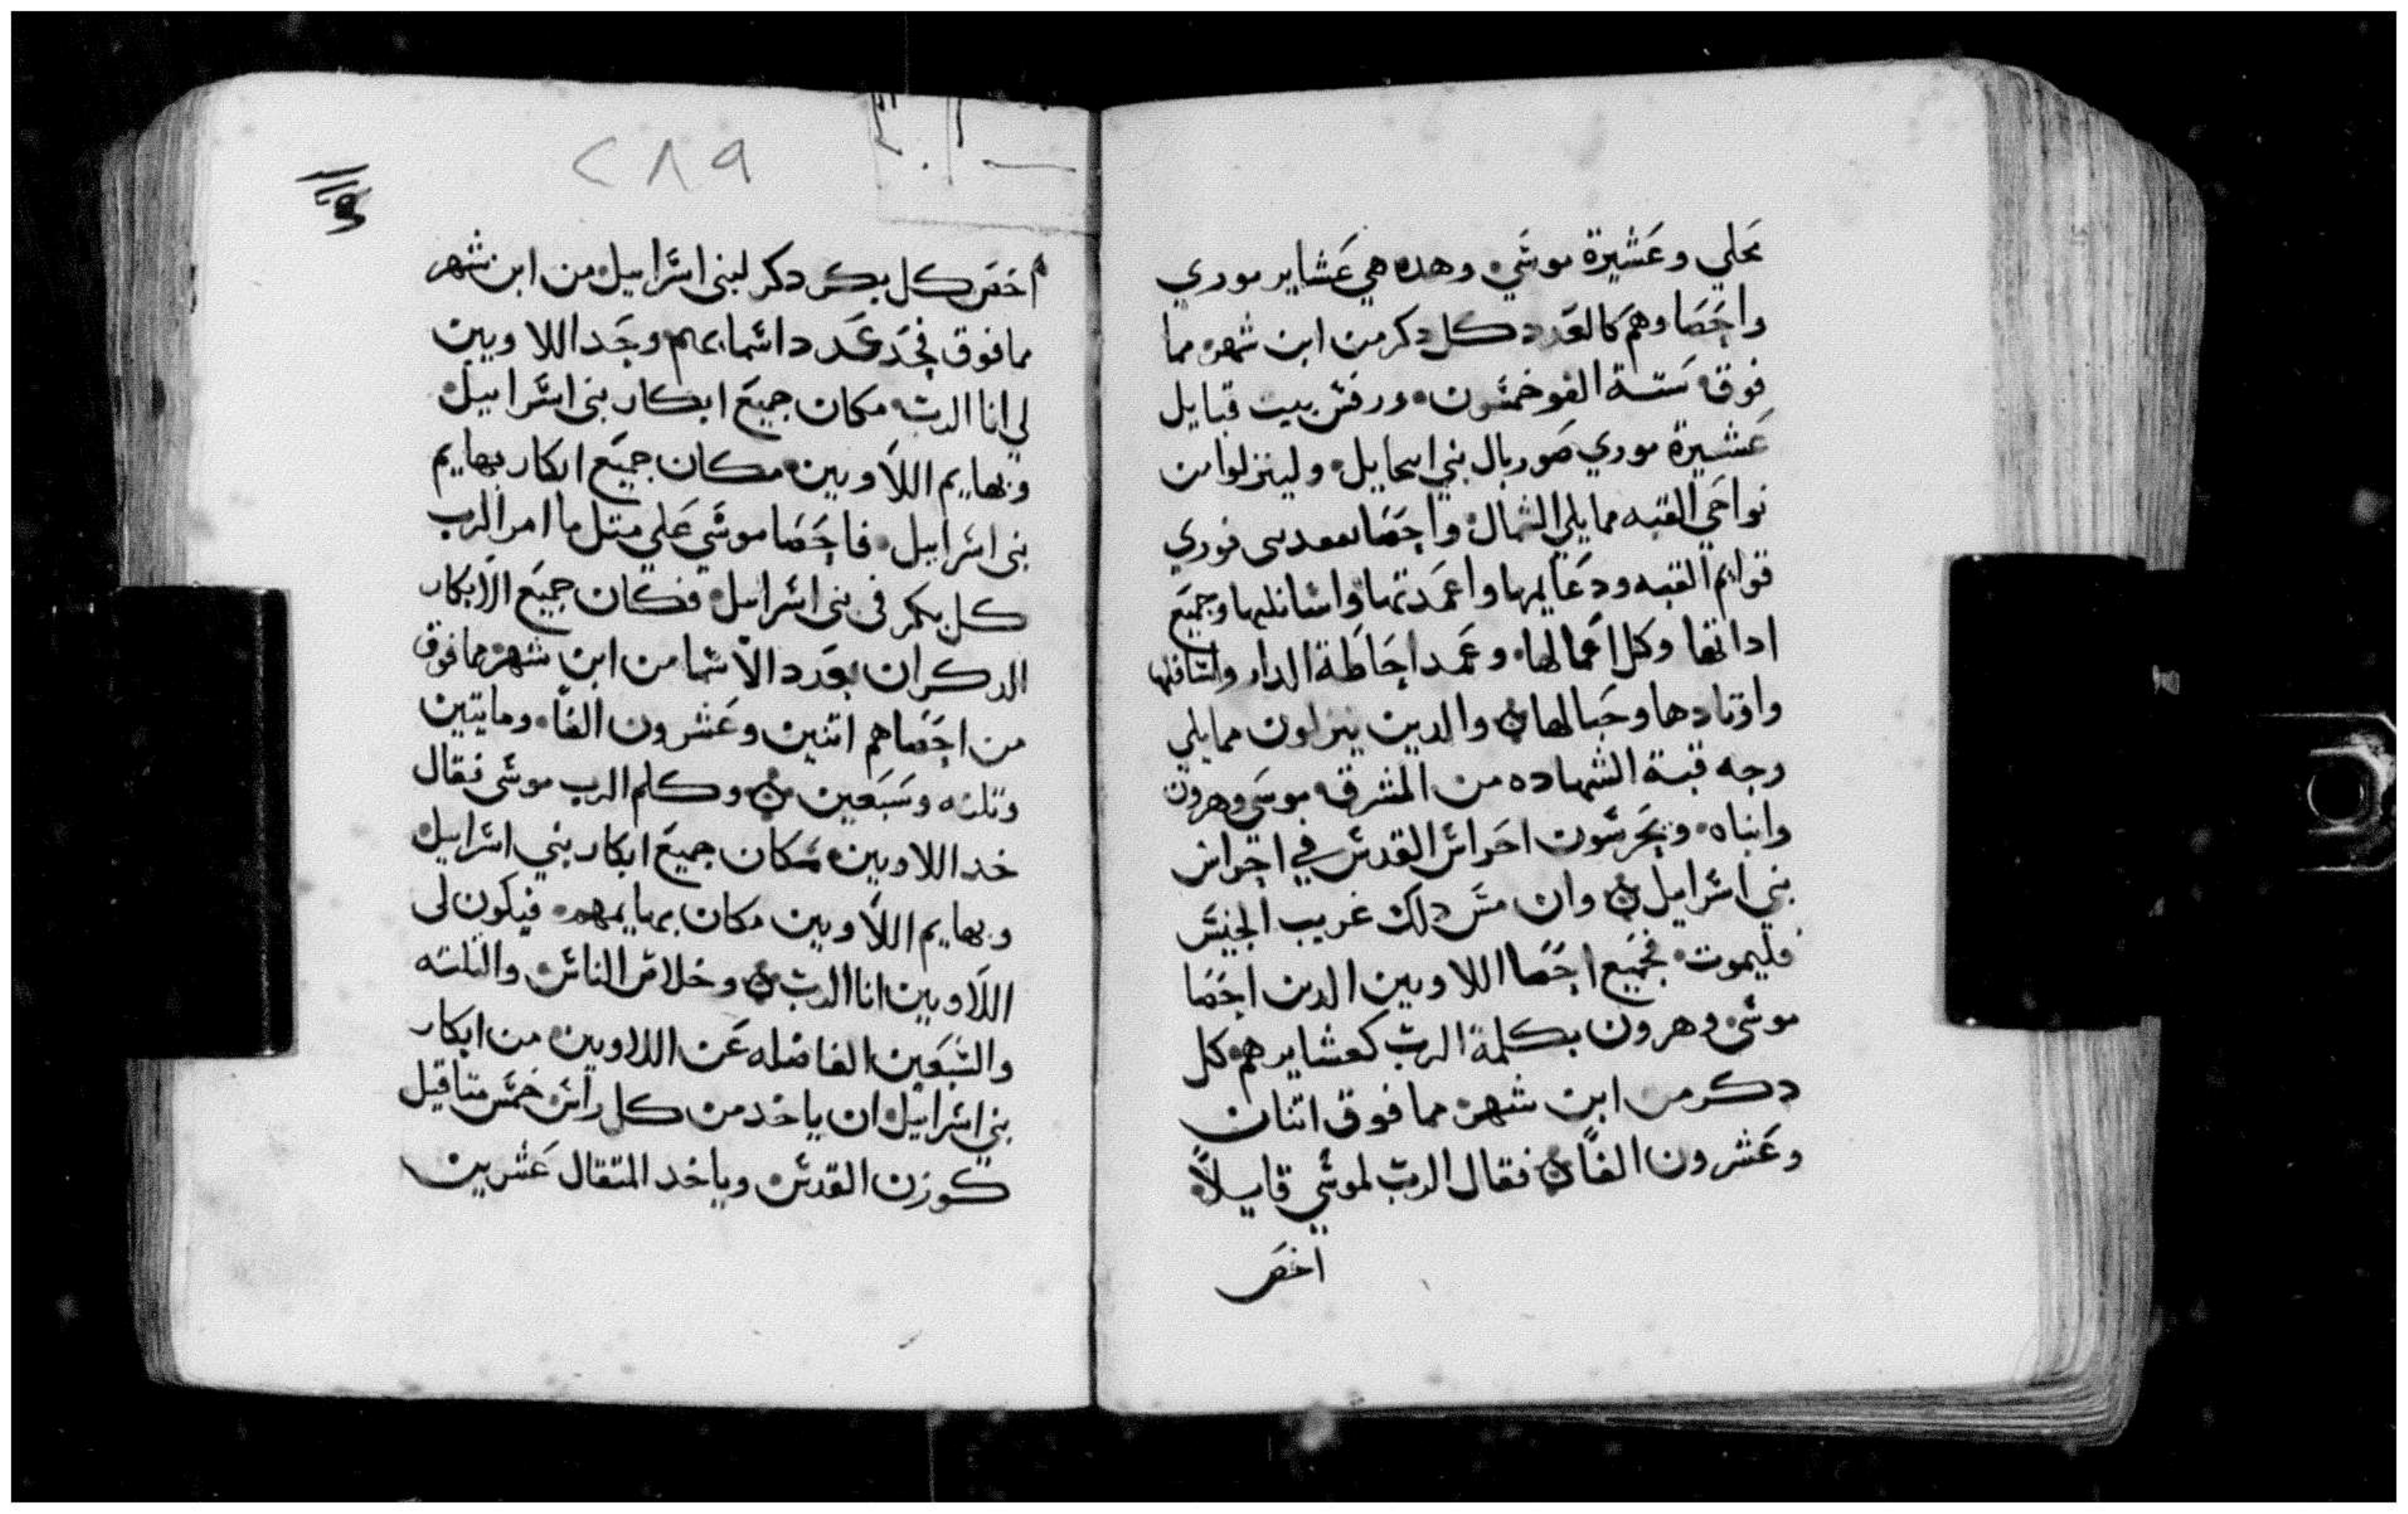 محلي وعشيرة موسي وهده هي عشاير موري
واحصاوهم كالعدد كل دكر من ابن شهر مما
فوق ستة الف وخمسون ورفس بيت قبايل
عشيرة موري صوريال بني ابيحايل ولينزلوا من
نواحي القبه مما يلي الشمال واحصا بني موري
قوايم القبه ودعايمها واعمدتها واسافلها وجميع
اداتها وكل اعمالها وعمد احاطة الدار واسافلها
واوتادها وحبالها والدين ينزلون مما يلي
وجه قبة الشهاده من المشرق موسي وهرون
وابناه ويحرسون احراس القدس في احراس
بني اسراييل وان مس دلك غريب الجنس
فليموت فجميع احصا اللاويين الدين احصا
موسي وهرون بكلمة الرب كعشايرهم كل
دكر من ابن شهر مما فوق اتنان
وعشرون الفاً فقال الرب لموسي قايلاً
احص
٢٨٩
احص كل بكر دكر لبني اسراييل من ابن شهر
مما فوق فخد عدد اسمايهم وخد اللاويين
لي انا الرب مكان جميع ابكار بني اسراييل
وبهايم اللاويين مكان جميع ابكار بهايم
بني اسراييل فاحصا موسي علي متل ما امر الرب
كل بكر في بني اسراييل فكان جميع الابكار
الدكران بعدد الاسما من ابن شهر مما فوق
من احصاهم اتنين وعشرون الفاً ومايتين
وتلته وسبعين وكلم الرب موسي فقال
خد اللاويين مكان جميع ابكار بني اسراييل
وبهايم اللاويين مكان بهايمهم فيكون لي
اللاويين انا الرب وخلاص الناس والتلته
والسبعين الفاضله عن اللاويين من ابكار
بني اسراييل ان ياخد من كل راس خمس متاقيل
كوزن القدس وياخد المتقال عشرين